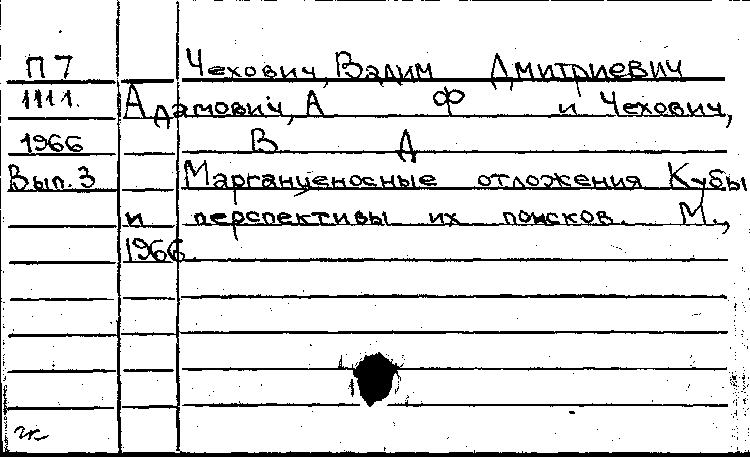 П 7 Чехович, Вадим Дмитриевич
1111. Адамович, А Ф и Чехович,
1966 В Д
Вып. 3 Марганценосные отложения Кубы
и перспективы их поисков. М.,
1966